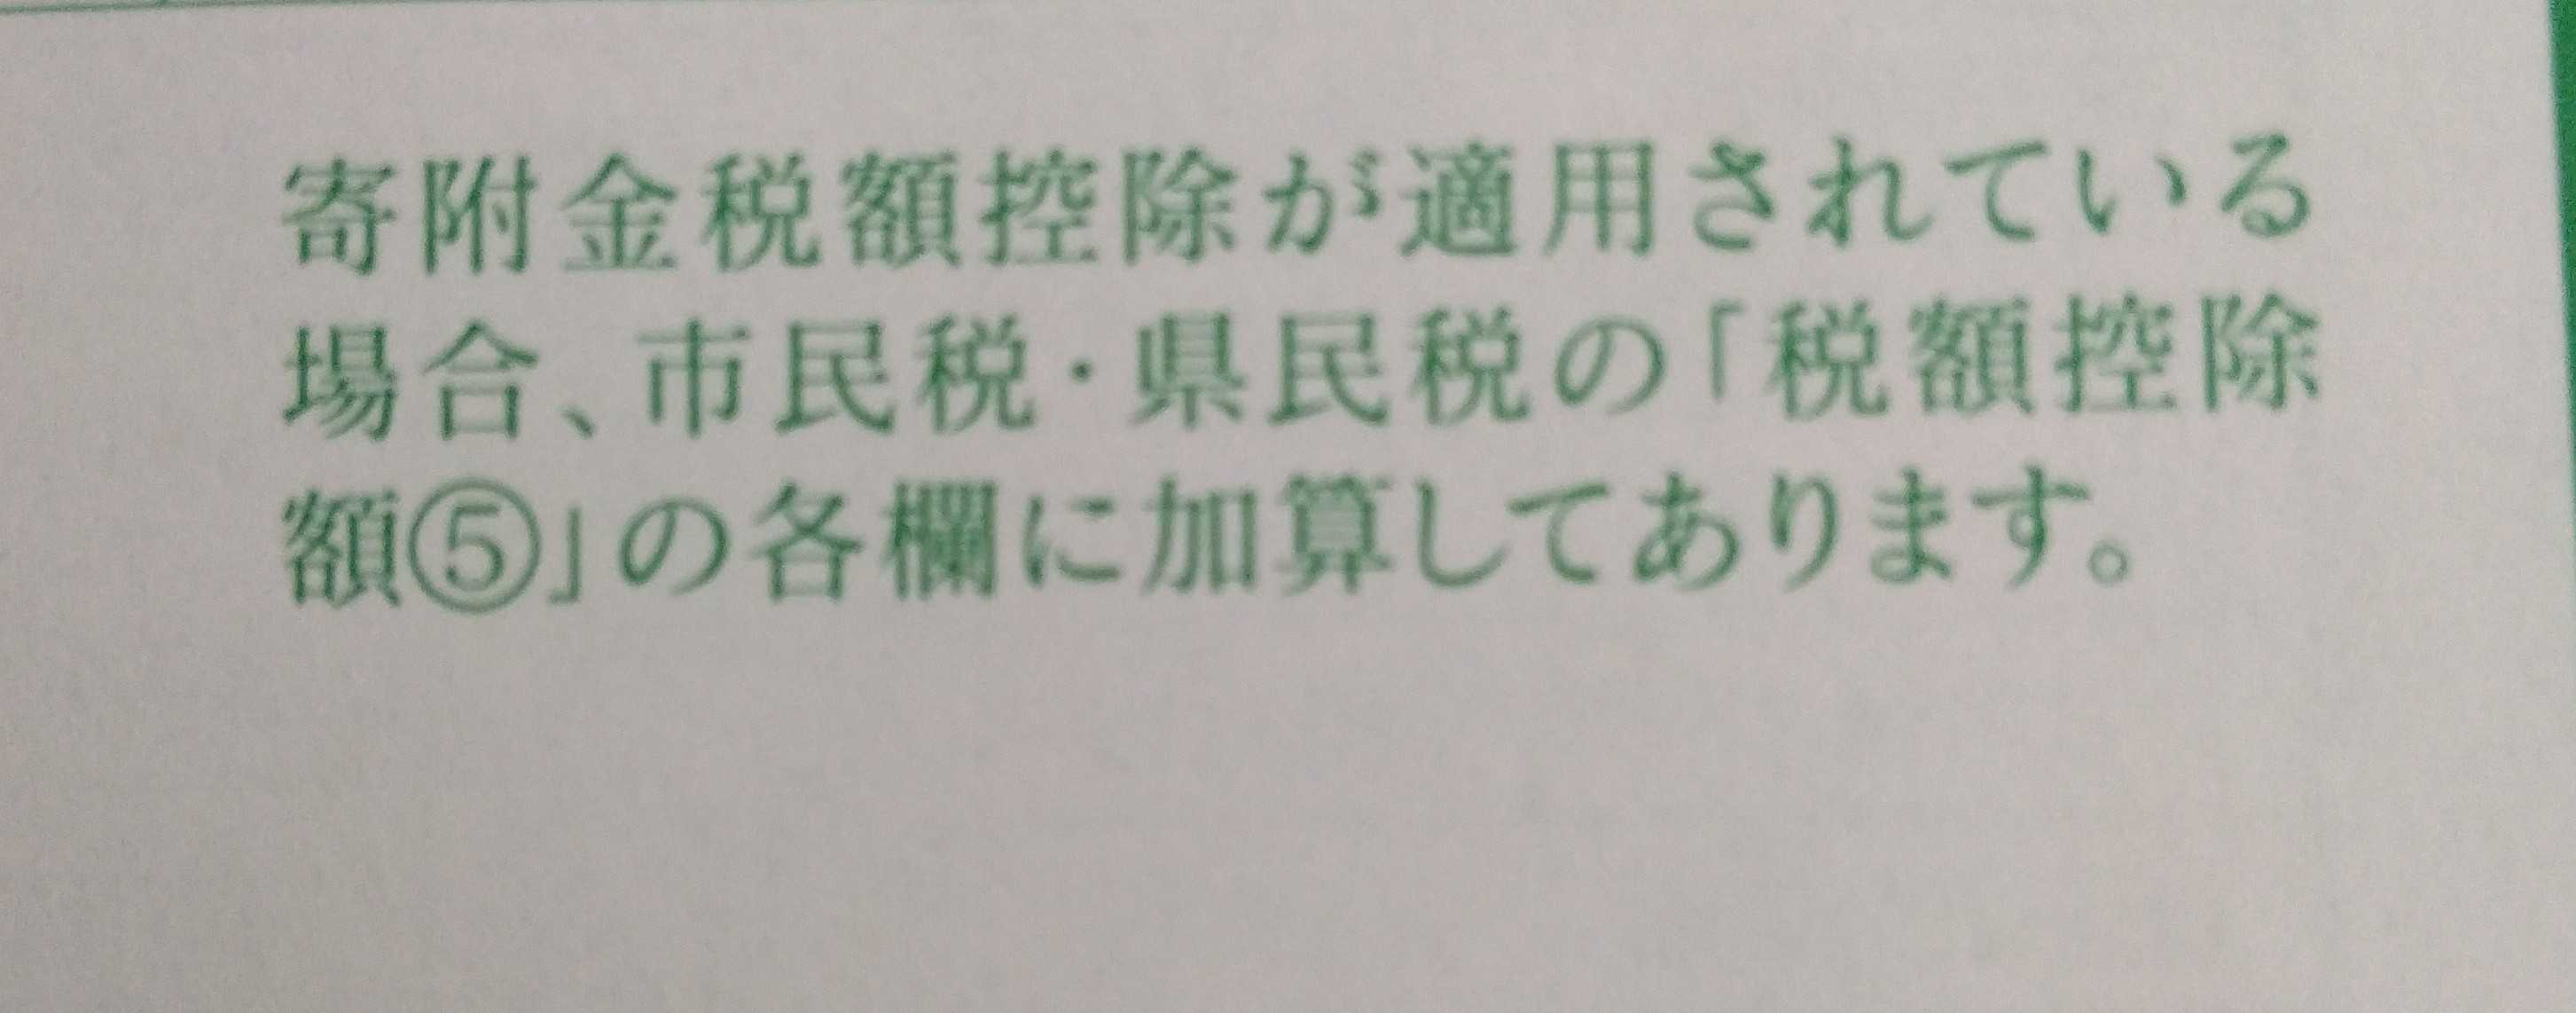 寄附金税額控除が適用されている
場合、市民税・県民税の「税額控除
額⑤」の各欄に加算してあります。